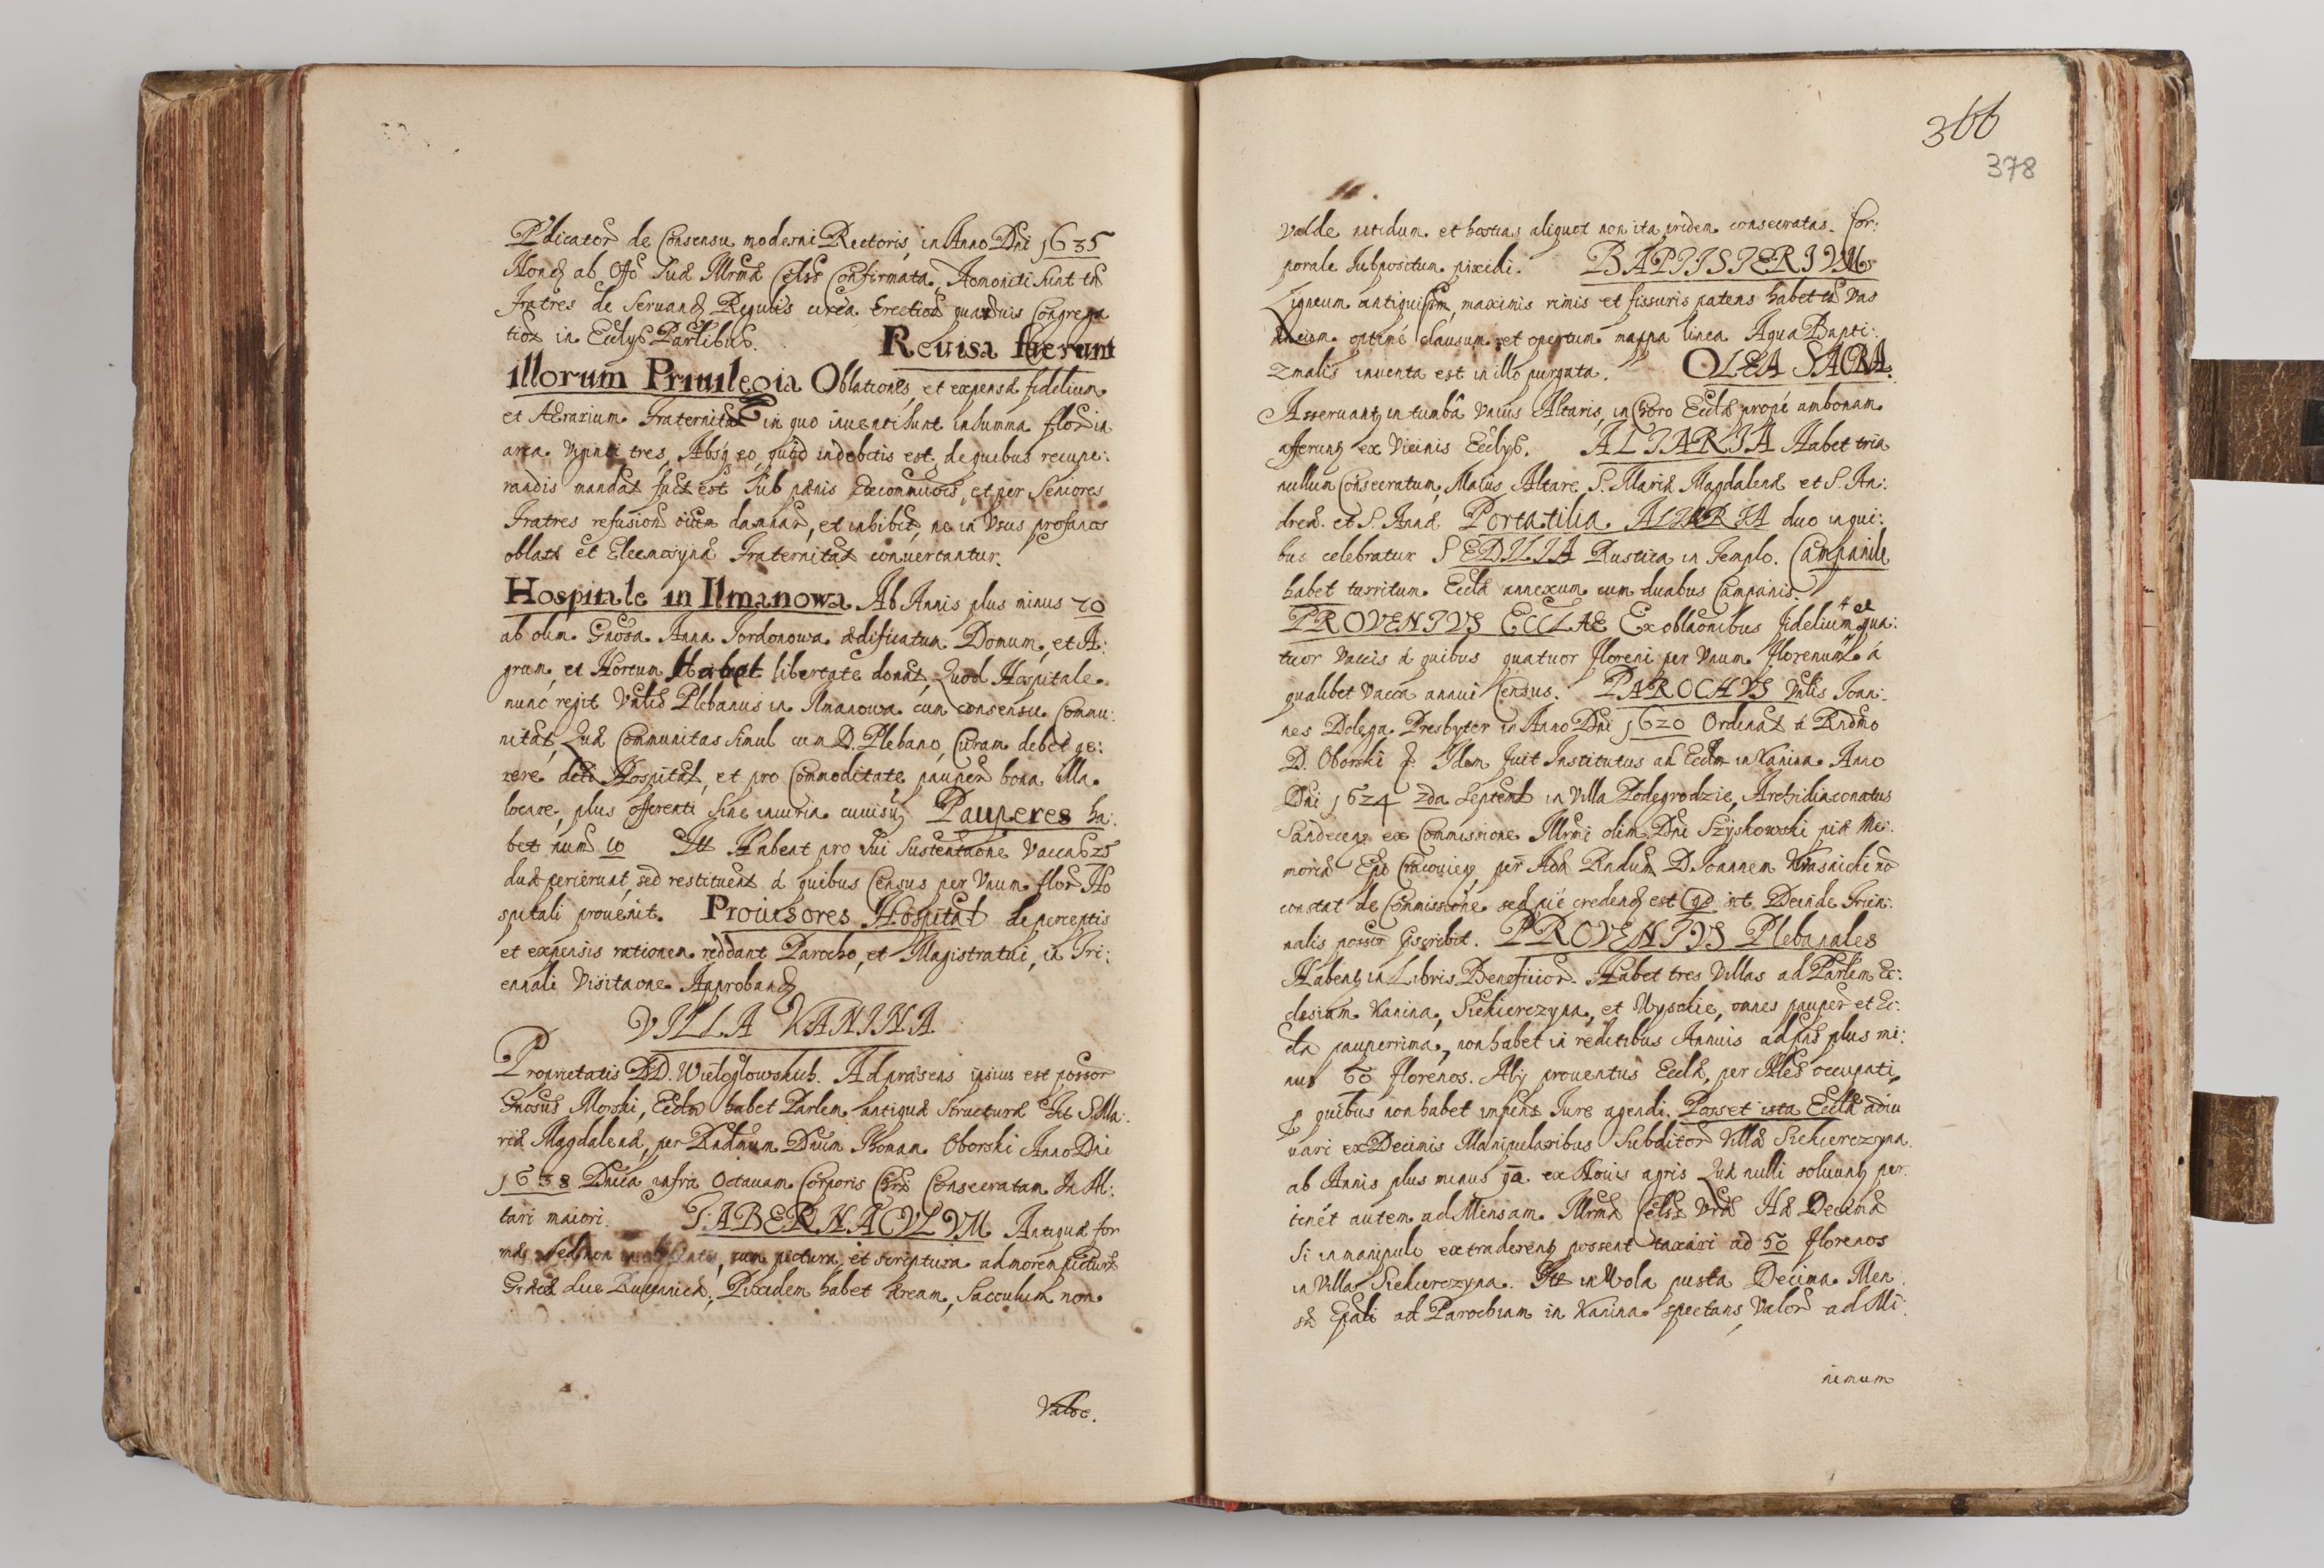 Pdicator de Consensu moderni Rectoris, in Anno Dni 1635
Nond ab Offo Suæ Illrmæ Celss Confirmata, Admoniti sunt tn
Fratres de Seruand Regulis circa Erectiod quaruis Congrega
tiod in Ecclijs Parlibus. Reuisa fuerunt
illorum Priuilegia Oblationes, et expensæ fidelium
et Aerarium Fraternitat in quo inuenti sunt in summa flor in
arca Viginti tres, Absq eo quod in debitis est, de quibus recupe:
randis mandat fact est Sub pænis Excommuois, et per Seniores
Fratres refusiod damnar, et inhibet, ne in Vsus profanos
oblatæ et Eleemosynæ Fraternitat conuertantur.
Hospitale in Ilmanowa Ab Annis plus minus 20
ab olim Gnosa Anna Jordonowa ædificatum Domum, et A:
grum, et Hortum Habet libertate donat, Quod Hospitale
nunc regit Vnlis Plebanus in Ilmanowa cum consensu Commu:
nitat, Quæ Communitas simul cum D. Plebano, Curam debet ge:
rere dcti Hospital, et pro Commoditate pauper bona illa
locare, plus offerenti sine iniuria cuiusq Pauperes ha:
bet num 10 Itt Habent pro sui Sustentaone Vaccas 25
duæ perierunt, sed restituent à quibus Census per Vnum flor Ho
spitali prouenit. Prouisores Hospitat de perceptis
et expensis rationem reddant Parocho, et Magistratui, in Tri:
ennali Visitaone Approband
VILLA KANINA
Proprietatis DD. Wieloglowskich. Ad præsens ipsius est possor
Gnosus Morski, Eccla habet Parlem antiquæ structuræ Tit S. Ma:
riæ Magdalenæ, per Rndmum Dnum Thomam Oborski Anno Dni
1638 Dnica infra Octauam Corporis Chri Consecratam In Al:
tari maiori. TABERNACVLVM Antiquæ for
mæ sed non, cum pictura et scriptura ad morem picturæ
Græcæ siue Ruthenicæ, Pixidem habet æream, Sacculum non
Valde.
366
378
valde nitidum et hostias aliquot non ita pridem consecratas. Cor:
porale Subpositum pixidi. BAPTISTERIVM
Ligneum antiquissim, maximis rimis et fissuris patens habet tn Vas
æneum optimé clausum et opertum mappa linea Aqua Bapti:
zmalis inuenta est in illo purgata. OLEA SACRA.
Asseruant in tumba Vnius Altaris, in Choro Ecclæ propé ambonam
afferunt ex Vicinis Ecclijs. ALTARIA Habet tria
nullum Consecratum, Maius Altare S. Mariæ Magdalenæ et S. An:
dreæ et S. Annæ Portatilia ALTARIA duo in qui:
bus celebratur SEDILIA Rustica in Templo. Campanile
habet turritum Ecclæ annexum cum duabus Campanis.
PROVENTVS ECCLAE Ex oblaonibus fidelium et qua:
tuor Vaccis à quibus quatuor floreni per Vnum florenum à
qualibet Vacca annui Census. PAROCHVS Vnlis Joan:
nes Dolega Presbyter in Anno Dni 1620 Ordinat à Rndmo
D. Oborski Idem fuit Institutus ad Ecclam in Kanina Anno
Dni 1624 2da Septemb in Villa Podegrodzie, Archidiaconatus
Sandecen ex Commissione Illrmi olim Dni Szyskowski piæ Me:
moriæ Epi Cracouien per Adm Rndum D. Joannem Krasnicki no
constat de Commissione sed pié credend est Deinde Trien:
nalis possor PROVENTVS Plebanales
Habent in Libris Beneficior. Habet tres Villas ad Parlem Ec:
clesiam Kanina, Siekierczyna, et Wysokie, omnes pauper et Ec:
cla pauperrima, non habet in reditibus Annuis ad pns plus mi:
nus 60 florenos. Alij prouentus Ecclæ, per occupati,
p quibus non habet impens Iure agendi. Posset ista Eccla adiu
uari ex Decimis Manipularibus Subditor Villæ Siekierczyna
ab Annis plus minus ex Nouis agris Quæ nulli soluunt per:
tinét autem ad Mensam Illrmæ Celss Vræ Hæ Decimæ
Si in manipulo extraderent possent taxari ad 50 florenos
in Villa Siekierczyna. Itt in Wola pusta Decima Men
sæ Epali ad Parochiam in Kanina spectans, Valor ad Mi:
nimum